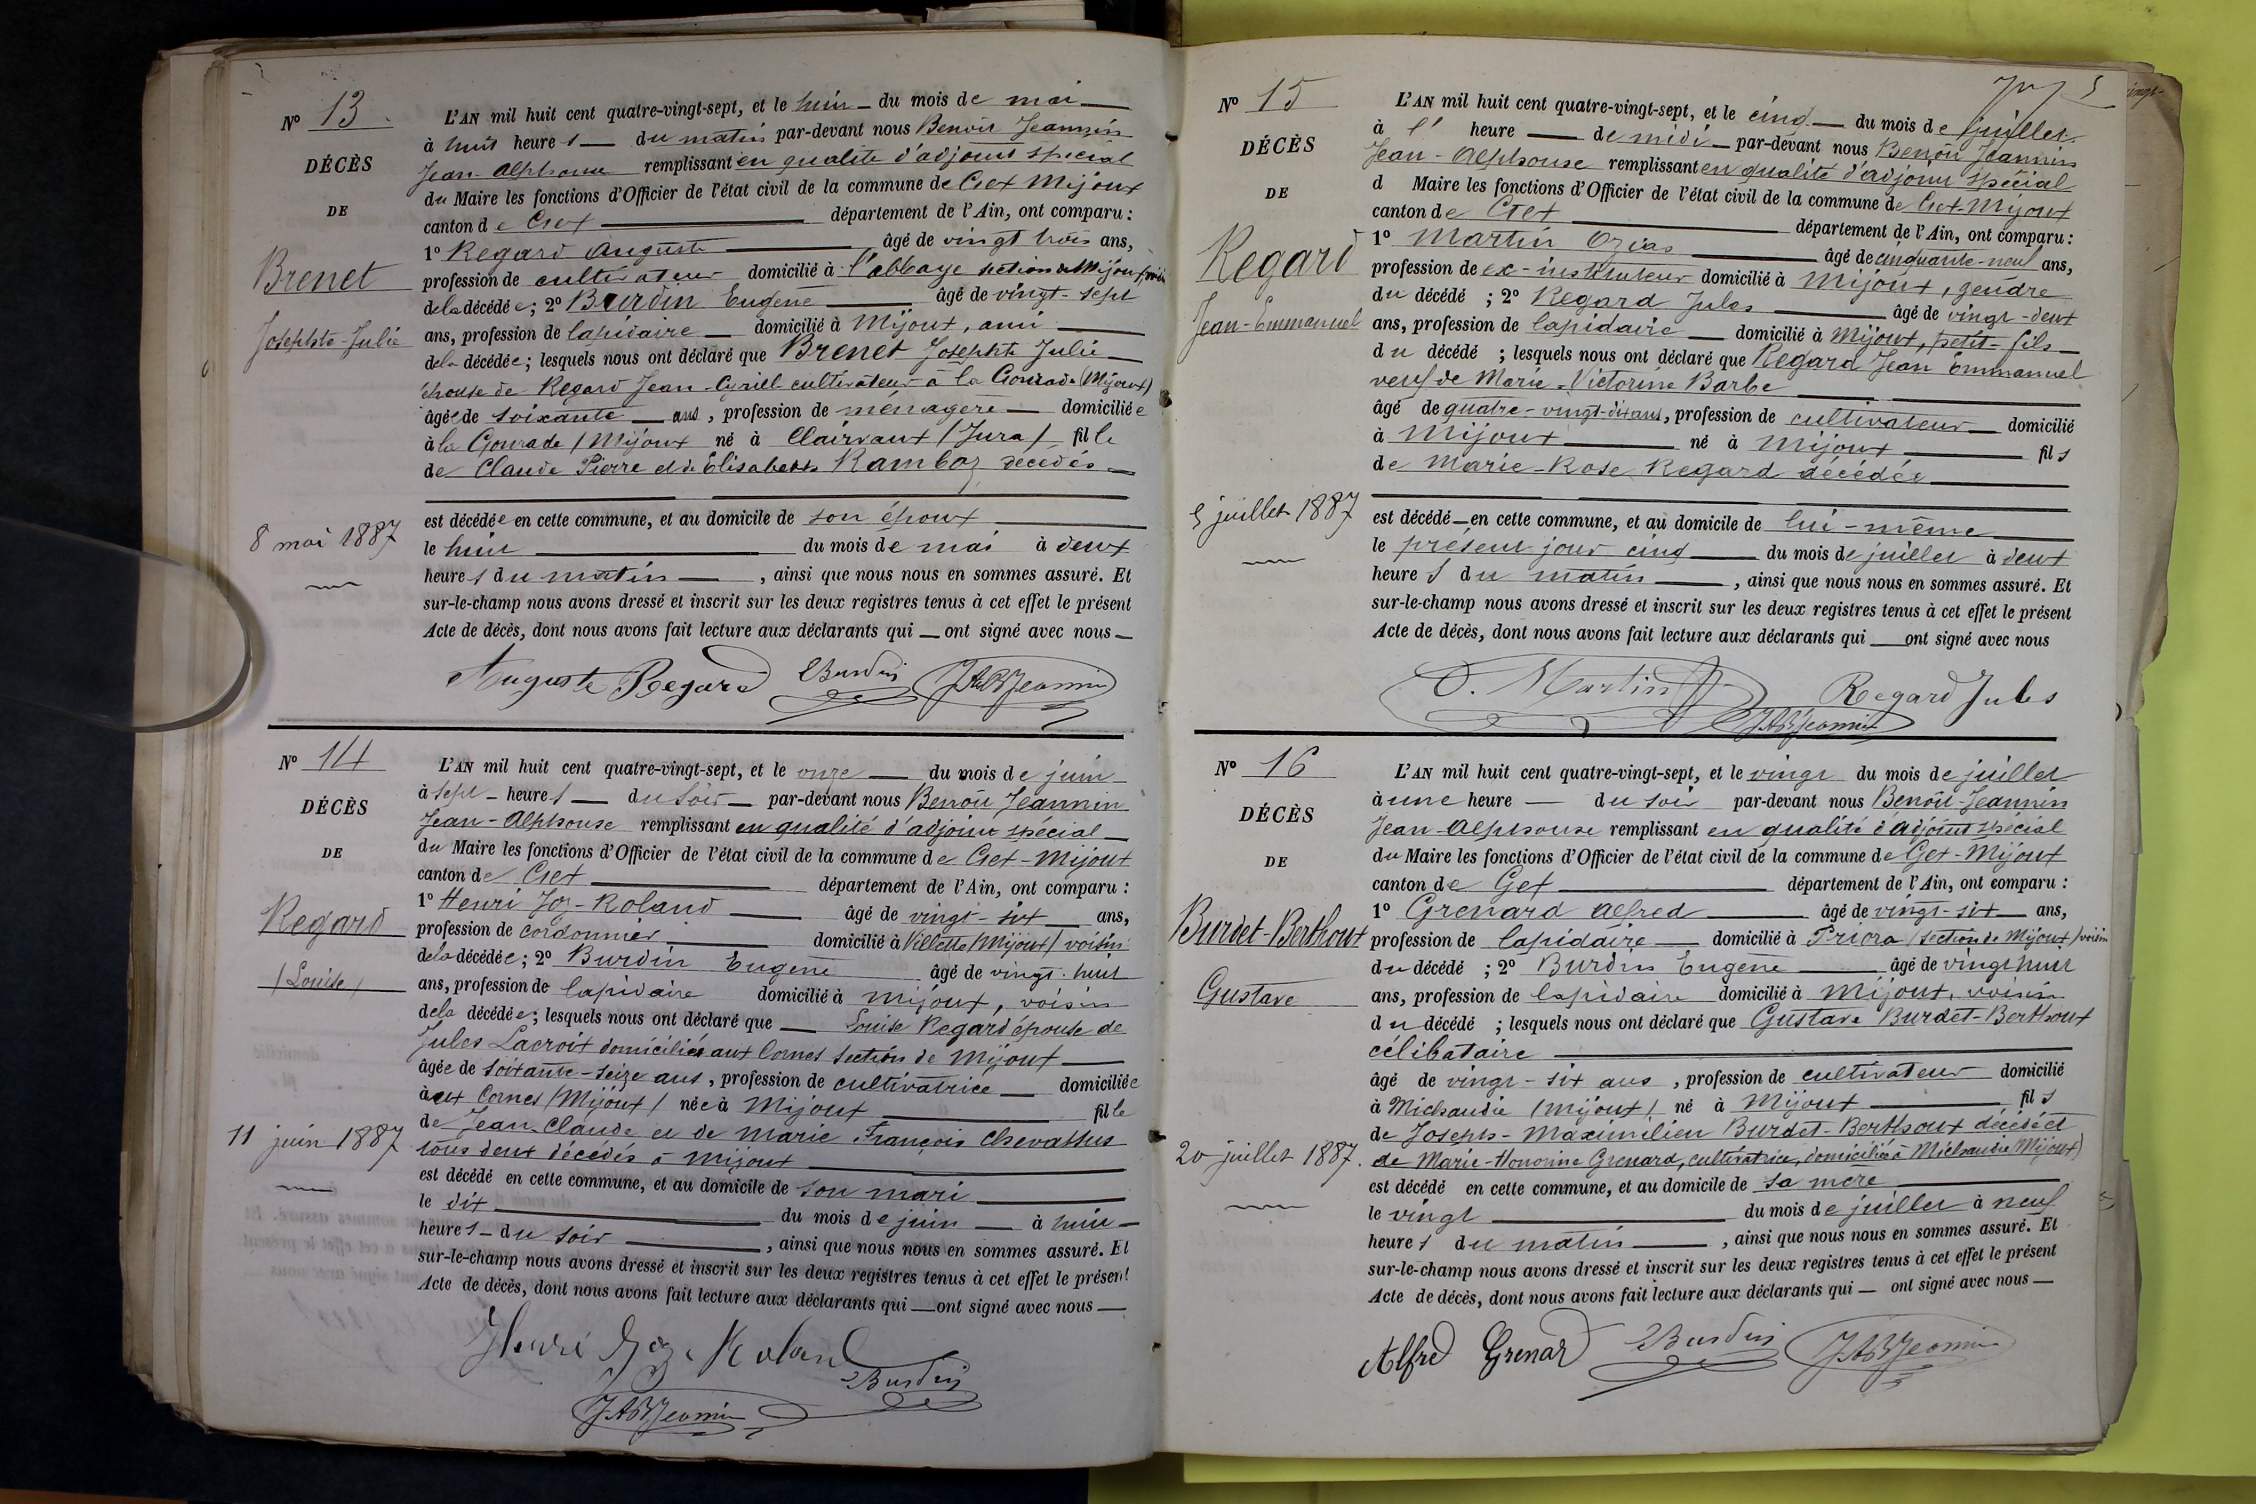 N° 13.
DÉCÈS
DE
Brenet
Josephte-Julie
8 mai 1887
L'AN mil huit cent quatre-vingt-sept, et le huit du mois de mai
à huit heures du matin par-devant nous Benoit Jeannin
Jean-Alphonse remplissant en qualité d'adjoint spécial
du Maire les fonctions d'Officier de l'état civil de la commune de Gex Mijoux
canton de Gex département de l'Ain, ont comparu :
1° Regard Auguste âgé de vingt trois ans,
profession de cultivateur domicilié à l'abbaye section de Mijoux, voisin
de la décédée ; 2° Burdin Eugène âgé de vingt-sept
ans, profession de lapidaire domicilié à Mijoux, ami
de la décédée ; lesquels nous ont déclaré que Brenet Josephte Julie
épouse de Regard Jean-Cyriel cultivateur à la Gourade (Mijoux)
âgée de soixante ans, profession de ménagère domiciliée
à la Gourade (Mijoux né à Clairvaux (Jura) fille
de Claude Pierre et de Elisabeth Ramboz décédés
est décédée en cette commune, et au domicile de son époux
le huit du mois de mai à deux
heures du matin, ainsi que nous nous en sommes assuré. Et
sur-le-champ nous avons dressé et inscrit sur les deux registres tenus à cet effet le présent
Acte de décès, dont nous avons fait lecture aux déclarants qui ont signé avec nous
Auguste Regard EBurdin JABJeannin
N° 14
DÉCÈS
DE
Regard
(Louise)
11 juin 1887
L'AN mil huit cent quatre-vingt-sept, et le onze du mois de juin
à sept heures du soir par-devant nous Benoit Jeannin
Jean-Alphonse remplissant en qualité d'adjoint spécial
du Maire les fonctions d'Officier de l'état civil de la commune de Gex-Mijoux
canton de Gex département de l'Ain, ont comparu :
1° Henri Joz-Roland âgé de vingt-six ans,
profession de cordonnier domicilié à Villette (Mijoux) voisin
de la décédée ; 2° Burdin Eugène âgé de vingt-huit
ans, profession de lapidaire domicilié à Mijoux, voisin
de la décédée ; lesquels nous ont déclaré que Louise Regard épouse de
Jules Lacroix domiciliés aux Cornes section de Mijoux
âgée de soixante-seize ans, profession de cultivatrice domiciliée
aux Cornes (Mijoux) née à Mijoux fille
de Jean-Claude et de Marie François Chevassus
tous deux décédés à Mijoux
est décédé en cette commune, et au domicile de son mari
le dix du mois de juin à huit
heures du soir, ainsi que nous nous en sommes assuré. Et
sur-le-champ nous avons dressé et inscrit sur les deux registres tenus à cet effet le présent
Acte de décès, dont nous avons fait lecture aux déclarants qui ont signé avec nous
Henri Joz-Roland EBurdin
JABJeannin
N° 15
DÉCÈS
DE
Regard
Jean-Emmanuel
5 juillet 1887
5
L'AN mil huit cent quatre-vingt-sept, et le cinq du mois de juillet
à l' heure de midi par-devant nous Benoit Jeannin
Jean-Alphonse remplissant en qualité d'adjoint spécial
d Maire les fonctions d'Officier de l'état civil de la commune de Gex-Mijoux
canton de Gex département de l'Ain, ont comparu :
1° Martin Ozias âgé de cinquante-neuf ans,
profession de ex-instituteur domicilié à Mijoux, gendre
du décédé ; 2° Regard Jules âgé de vingt-deux
ans, profession de lapidaire domicilié à Mijoux, petit-fils
du décédé ; lesquels nous ont déclaré que Regard Jean Emmanuel
veuf de Marie-Victorine Barbe
âgé de quatre-vingt-dix ans, profession de cultivateur domicilié
à Mijoux né à Mijoux fils
de Marie-Rose Regard décédée
est décédé en cette commune, et au domicile de lui-même
le présent jour cinq du mois de juillet à deux
heures du matin, ainsi que nous nous en sommes assuré. Et
sur-le-champ nous avons dressé et inscrit sur les deux registres tenus à cet effet le présent
Acte de décès, dont nous avons fait lecture aux déclarants qui ont signé avec nous
O. Martin Regard Jules
JABJeannin
N° 16
DÉCÈS
DE
Burdet-Berthoux
Gustave
20 juillet 1887.
L'AN mil huit cent quatre-vingt-sept, et le vingt du mois de juillet
à une heure du soir par-devant nous Benoit-Jeannin
Jean-Alphonse remplissant en qualité d'adjoint spécial
du Maire les fonctions d'Officier de l'état civil de la commune de Gex-Mijoux
canton de Gex département de l'Ain, ont comparu :
1° Grenard Alfred âgé de vingt-six ans,
profession de lapidaire domicilié à Priora (section de Mijoux) voisin
du décédé ; 2° Burdin Eugène âgé de vingt huit
ans, profession de lapidaire domicilié à Mijoux, voisin
du décédé ; lesquels nous ont déclaré que Gustave Burdet-Berthoux
célibataire
âgé de vingt-six ans, profession de cultivateur domicilié
à Michaudie (Mijoux) né à Mijoux fils
de Joseph-Maximilien Burdet-Berthoux décédé et
de Marie-Honorine Grenard, cultivatrice, domiciliée à Michaudie (Mijoux)
est décédé en cette commune, et au domicile de sa mère
le vingt du mois de juillet à neuf
heures du matin, ainsi que nous nous en sommes assuré. Et
sur-le-champ nous avons dressé et inscrit sur les deux registres tenus à cet effet le présent
Acte de décès, dont nous avons fait lecture aux déclarants qui ont signé avec nous
Alfred Grenard EBurdin JABJeannin